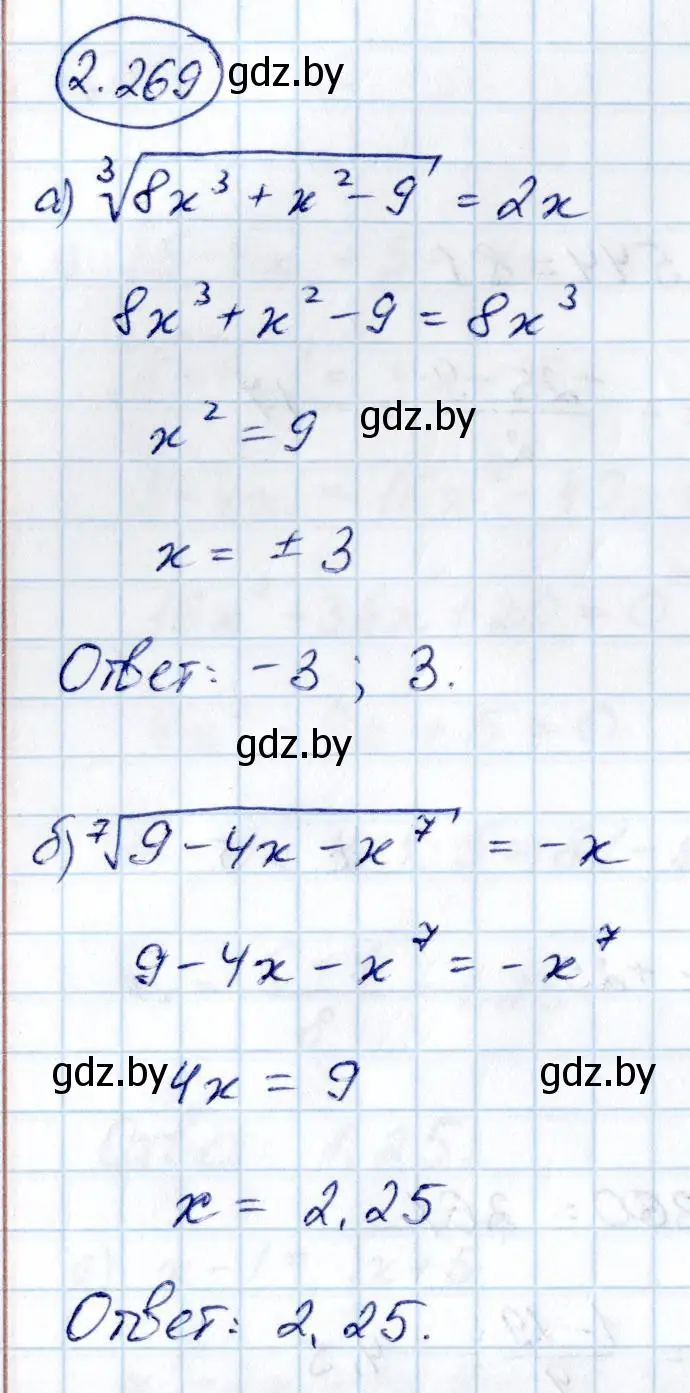 2.269 gdz.by
а) ∛(8x³ + x² - 9) = 2x
8x³ + x² - 9 = 8x³
x² = 9 gdz.by
x = ± 3
Ответ: -3 ; 3.
gdz.by
б) ⁷√(9 - 4x - x⁷) = -x
9 - 4x - x⁷ = -x⁷
gdz.by 4x = 9 gdz.by
x = 2,25
Ответ: 2,25.